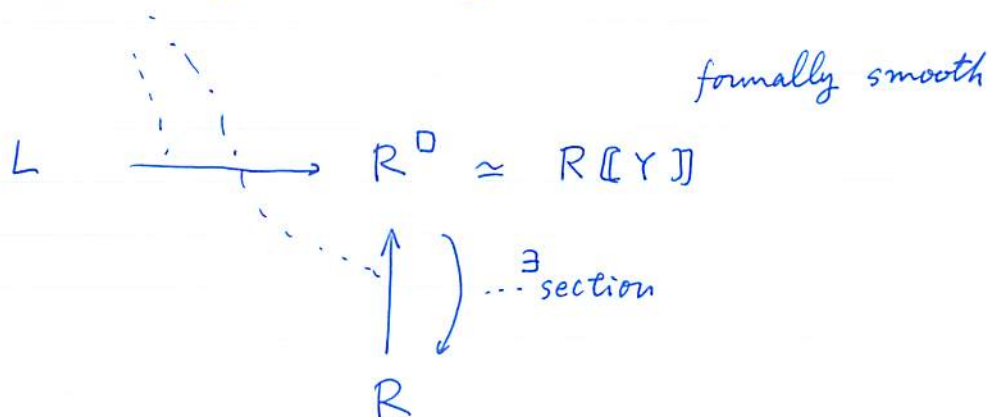 formally smooth
L → R^□ ≃ R⟦Y⟧
∃
... section
R